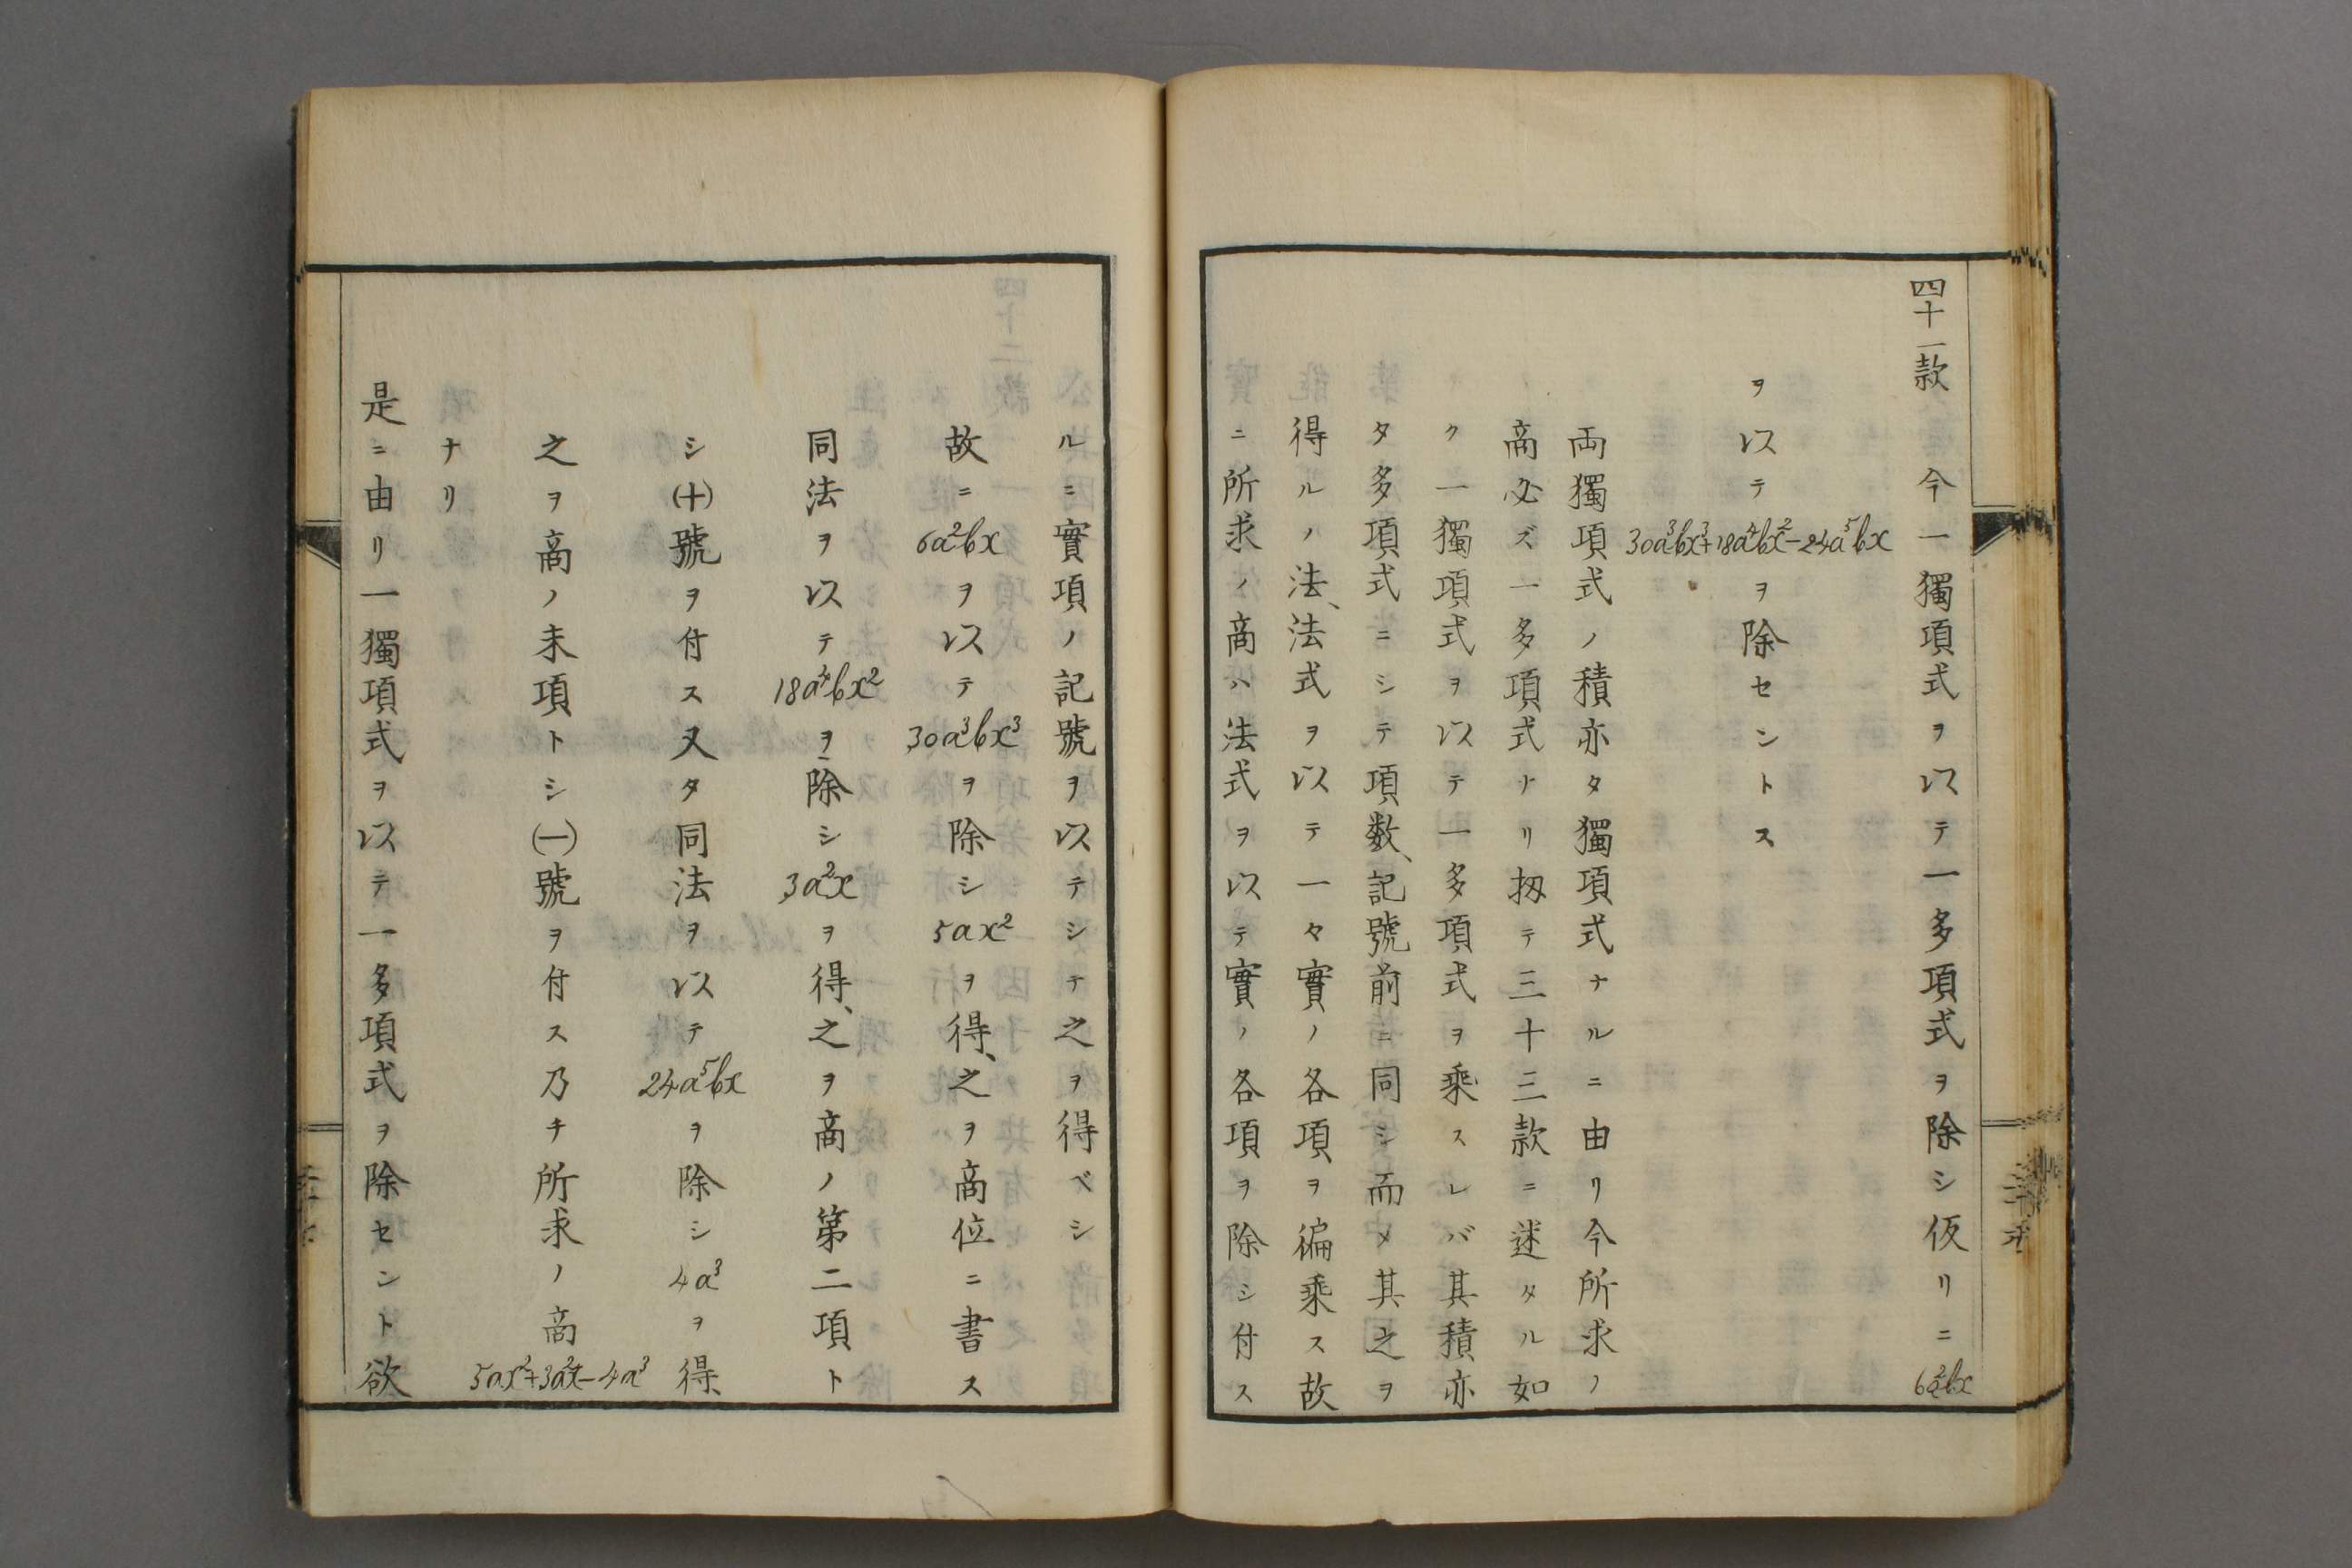 四十一款 今一獨項式ヲ以テ一多項式ヲ除シ仮リニ 6a²bx
ヲ以テ 30a³bx³+18a⁴bx²-24a⁵bx ヲ除セントス
両獨項式ノ積亦タ獨項式ナルニ由リ今所求ノ
商必ズ一多項式ナリ扨テ三十三款ニ述タル如
ク一獨項式ヲ以テ一多項式ヲ乘スレバ其積亦
タ多項式ニシテ項数、記號前ニ同シ而メ其之ヲ
得ルノ法、法式ヲ以テ一々實ノ各項ヲ徧乘ス故
ニ所求ノ商ハ法式ヲ以テ實ノ各項ヲ除シ付ス
ルニ實項ノ記號ヲ以テシテ之ヲ得ベシ
故ニ 6a²bx ヲ以テ 30a³bx³ ヲ除シ 5ax² ヲ得、之ヲ商位ニ書ス
同法ヲ以テ 18a⁴bx² ヲ除シ 3a²x ヲ得、之ヲ商ノ第二項ト
シ(十)號ヲ付ス又タ同法ヲ以テ 24a⁵bx ヲ除シ 4a³ ヲ得、
之ヲ商ノ末項トシ(一)號ヲ付ス乃チ所求ノ商 5ax²+3a²x-4a³
ナリ
是ニ由リ一獨項式ヲ以テ一多項式ヲ除セント欲